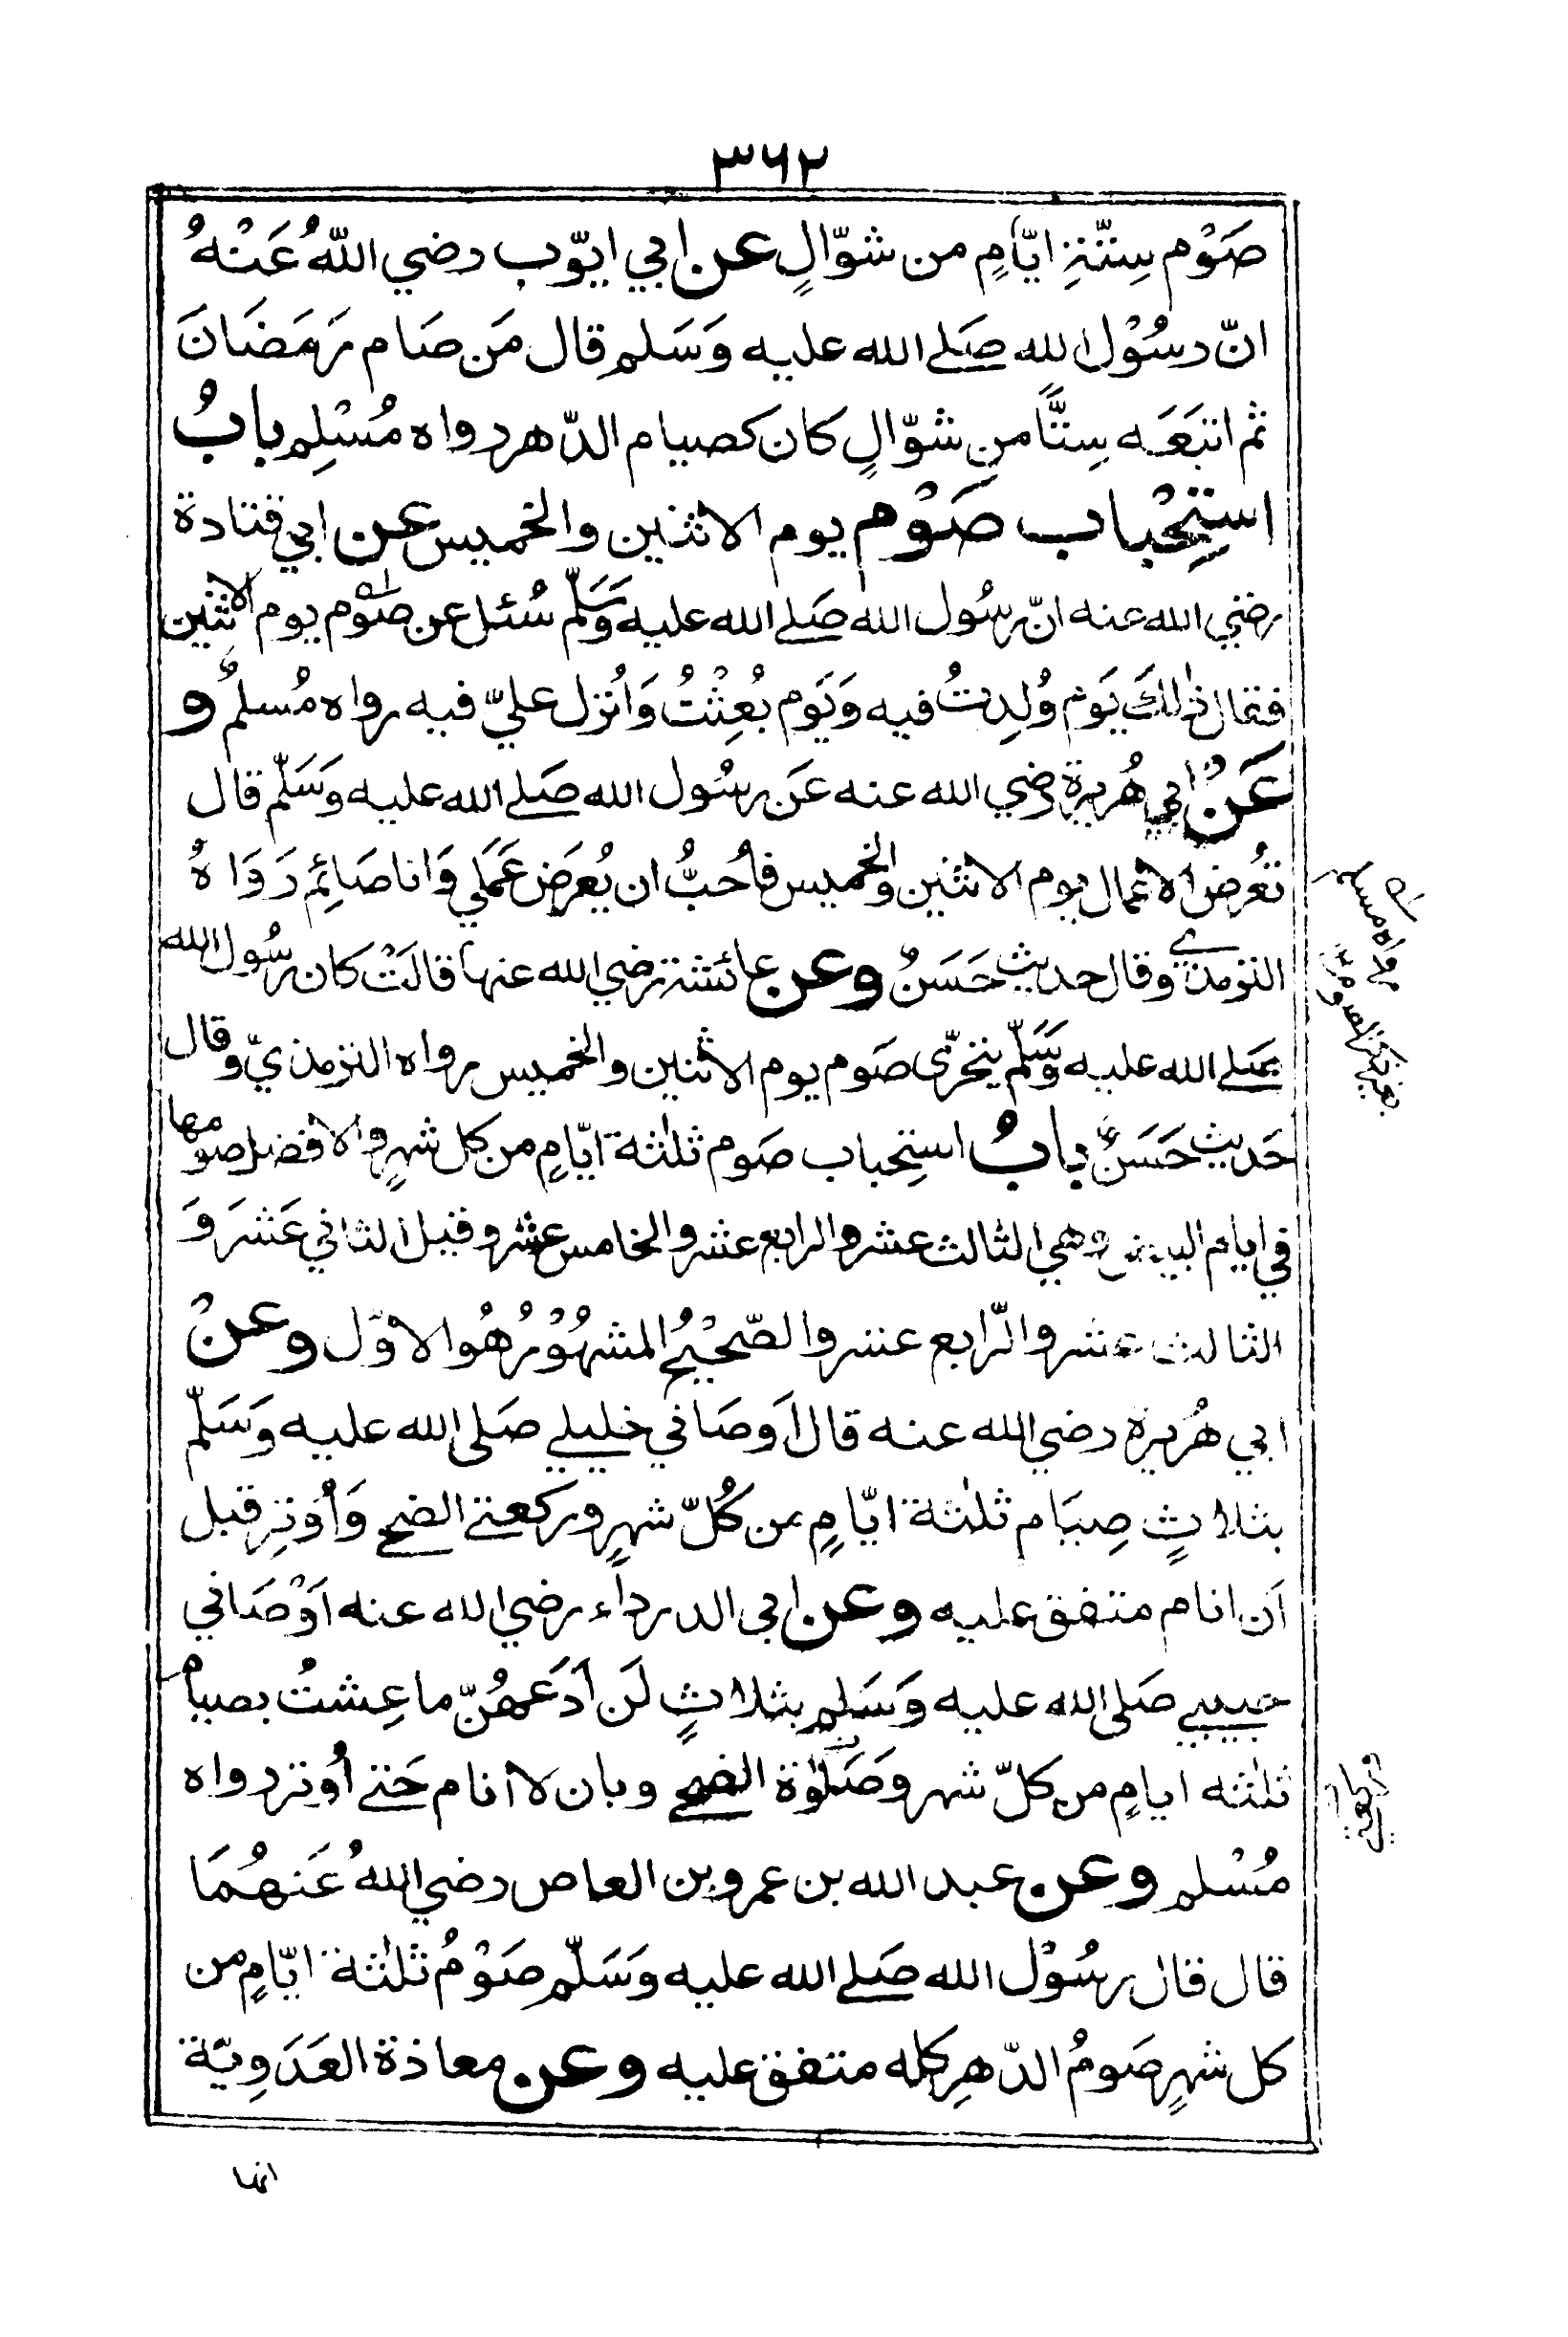 ٣٦٢
صَوْم سِتّةِ ايّامٍ من شوّالٍ عن ابي ايّوب رضي اللهُ عَنْهُ
انّ رسُوْل الله صَلے الله عليه وَسَلم قال مَن صَام رَمَضَانَ
ثم اتبَعَه سِتًّا من شوّالٍ كان كصيام الدّهر رواه مُسْلِم بابُ
استِحْباب صَوْم يوم الاثنين والخميس عن ابي قتادة
رضي الله عنه انّ رسُول الله صَلے الله عليه وَسَلّم سُئل عن صَوْم يوم الاثنين
فقال ذٰلكَ يَوْم وُلِدتُ فيه وَيَوم بُعِثْتُ وَاُنزل عليّ فيه رواه مُسلمٌ و
عَنْ ابي هُريرة رضي الله عنه عَن رسُول الله صَلے الله عليه وَسَلّم قال
تُعْرض الاعمال يوم الاثنين والخميس فأحُبُّ ان يُعرَض عَمَلي وَانا صَائِم رَوَاهُ
الترمذي وقال حديث حَسَنٌ وعن عائشة رضي الله عنها قالَتْ كان رسُول الله
صَلے الله عليه وَسَلّم يتحَرّى صَوم يوم الاثنين والخميس رواه الترمذيّ وقال
حَديث حَسَنٌ بابُ استِحباب صَوم ثلٰثة ايّامٍ من كل شهرٍ والافضل صومها
في ايام البيض وهي الثالث عشر والرابع عشر والخامس عشر وقيل الثاني عَشَر وَ
الثالث عشر والرّابع عشر والصّحيْحُ المشهُوْرُ هُو الاوّل وعنْ
ابي هُريرة رضي الله عنه قال اَوصَاني خليلے صَلى الله عليه وَسَلّم
بثلاثٍ صِيَام ثلٰثة ايّامٍ من كُلّ شهرٍ وركعتے الضحے وَأُوتِر قبل
اَن انام متفق عليه وعن ابي الدرداء رضي الله عنه اَوْصَاني
حبيبے صَلى الله عليه وَسَلم بثلاثٍ لَن اَدَعَهُنّ ما عِشتُ بصيام
ثلٰثه ايامٍ من كلّ شهر وصَلٰوة الضحے وبان لا انام حَتے اُوتر رواه
مُسْلم وعن عبد الله بن عمرو بن العاص رضي اللهُ عَنهُمَا
قال قال رسُوْل الله صَلے الله عليه وَسَلّم صَوْمُ ثلٰثة ايّامٍ من
كل شهرٍ صَومُ الدّهرِ كله متفق عليه وعن معاذة العَدَوِيّة
انها
رواه مسلم
بغير ذكر الصوم